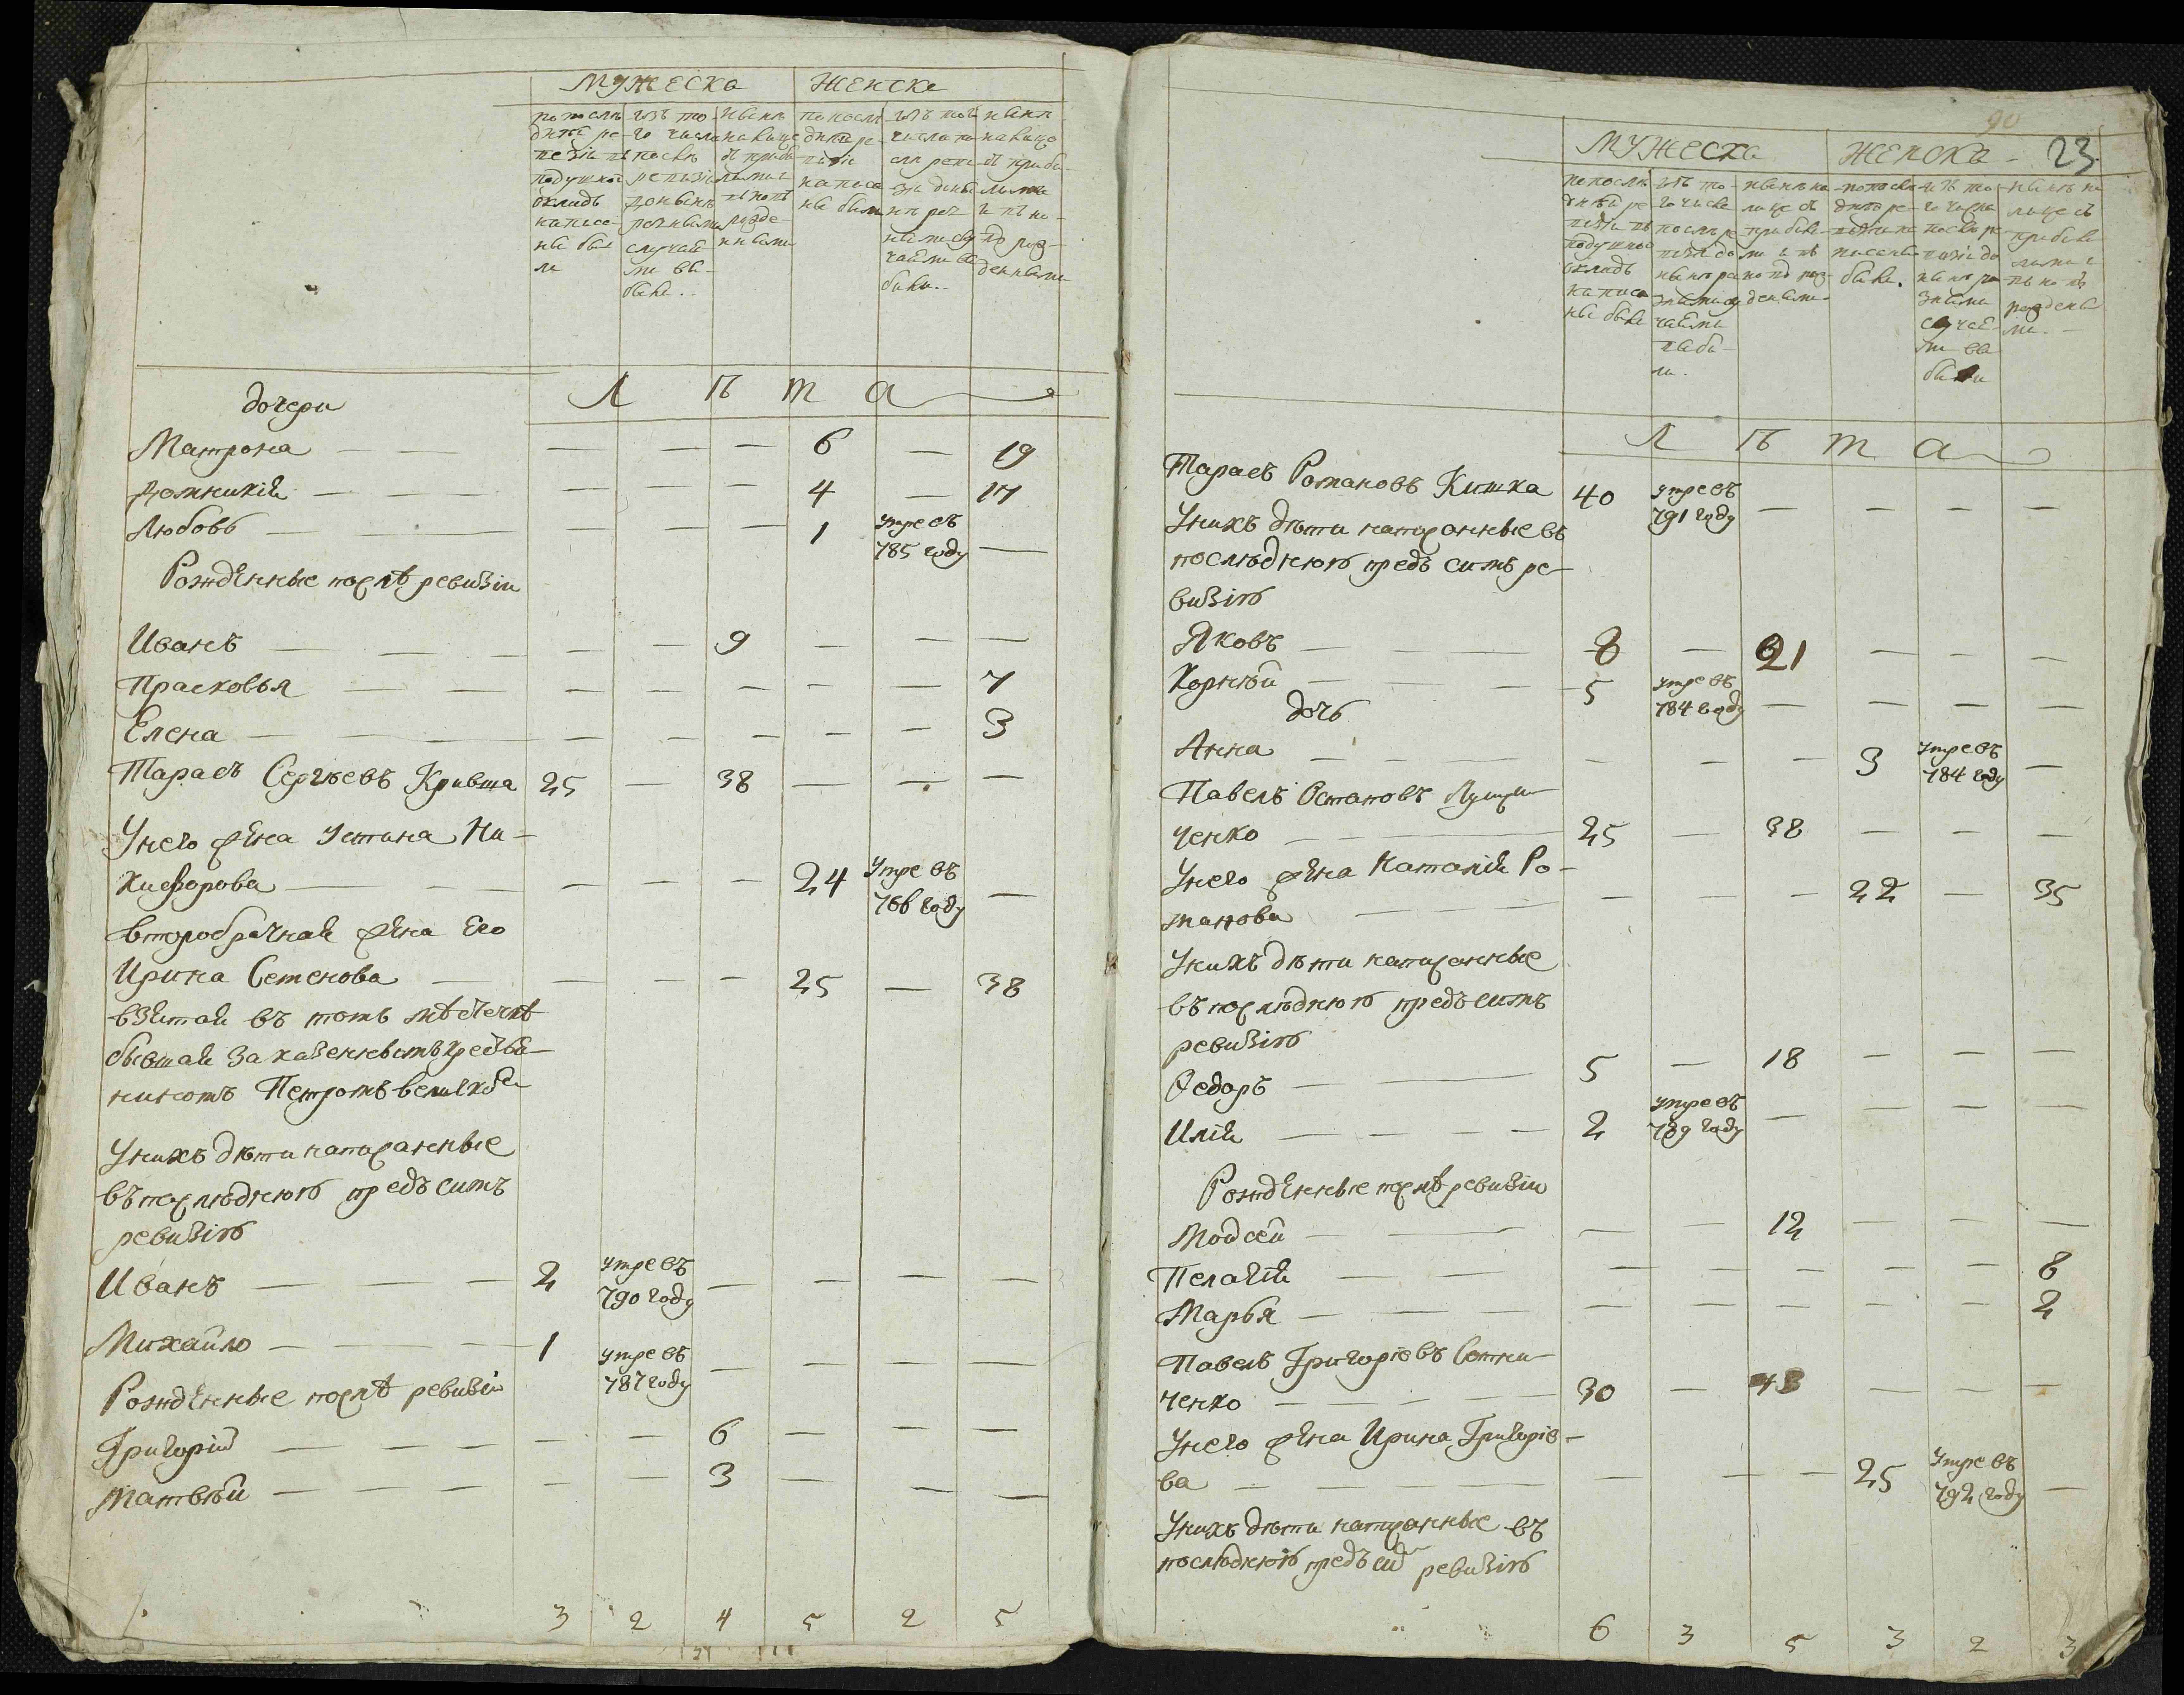 Мужеска Женска
по последней ревизіи въ подушной окладъ написаны были
изъ того числа послѣ ревизіи до нынѣ разными случаями выбыли
и нынѣ на лице съ прибылыми и вновь рожденными
по последней ревизіи написаны были
изъ того числа после ревизіи до нынѣ разными случаями выбыли
и нынѣ на лице съ прибылыми и вновь рожденными
Л ѣ т а
дочери
Матрона — — — — — 6 — 19
Домникія — — — — — — 4 — 17
Любовь — — — — — 1 умре въ 785 году —
Рожденные послѣ ревизіи
Иванъ — — — — — 9 — — —
Прасковья — — — — — — — — 7
Елена — — — — — — — — 3
Тарасъ Сергѣевъ Кривша 25 — 38 — — —
У него жена Устина Ни-
кифорова — — — — — — 24 умре въ 786 году —
второбрачная жена Его
Ирина Семенова — — — — 25 — 38
взятая въ томъ мѣстечкѣ
бывшая за казеннымъ
Петромъ
У нихъ дѣти написанные
въ последнюю предъ симъ
ревизію
Иванъ — — — 2 умре въ 790 году — — — —
Михайло — — — — 1 умре въ 787 году — — — —
Рожденные послѣ ревизіи
Григорій — — — — — — 6 — — —
Матвѣй — — — — — — 3 — — —
3 2 4 5 2 5
90
23.
Мужеска Женска
по последней ревизіи въ подушной окладъ написаны были
изъ того числа после ревизіи до нынѣ разными случаями выбыли
и нынѣ на лице съ прибылыми и въ новь рожденными
по последней ревизіи написаны были.
изъ того числа после ревизіи до нынѣ разными случаями выбыли
и нынѣ на лице съ прибылыми и вновь рожденными.
Л ѣ т а
Тарасъ Романовъ Кишка 40 умре въ 791 году — — — —
У нихъ дѣти написанные въ
последнюю предъ симъ ре-
визію
Яковъ — — — — 8 — 21 — — —
Корнѣй — — — — 5 умре въ 784 году — — — —
дочь
Анна — — — — — — — 3 умре въ 784 году —
Павелъ Остаповъ
ченко — — — 25 — 38 — — —
У него жена Наталія Ро-
манова — — — — — — 22 — 35
У нихъ дѣти написанные
въ последнюю предъ симъ
ревизію
Ѳедоръ — — 5 — 18 — — —
Илія — — — — 2 умре въ 789 году — — — —
Рожденные послѣ ревизіи
Мойсей — — — — 12 — — —
Пелагія — — — — — — — 8
Марья — — — — — — — — — 2
Павелъ Григоріевъ Сотни-
ченко — — — — 30 — 43 — — —
У него жена Ирина Григоріе-
ва — — — — — — — 25 умре въ 792 году —
У нихъ дѣти написанные въ
последнюю предъ сим ревизію
6 3 5 3 2 3